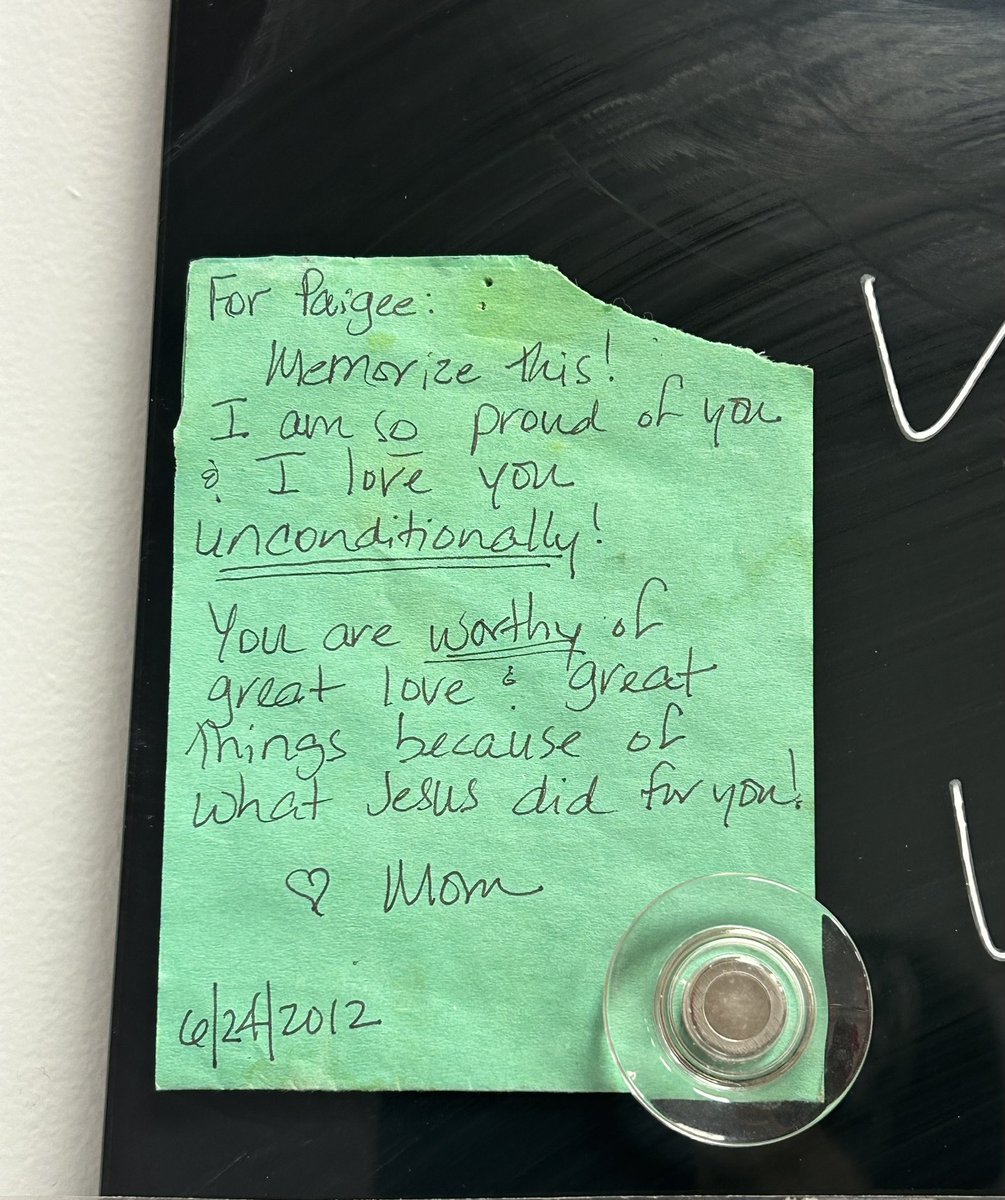 For Paigee:
Memorize this!
I am so proud of you
& I love you
unconditionally!
You are worthy of
great love & great
things because of
what Jesus did for you!
♡ Mom
6/24/2012